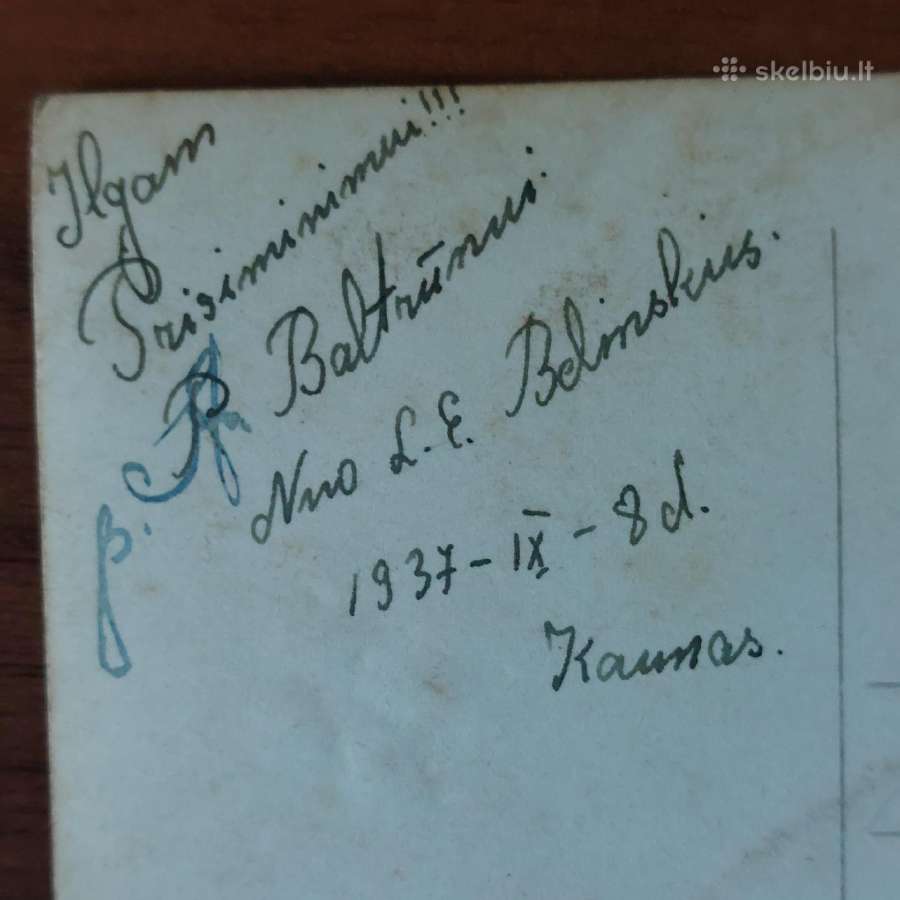 skelbiu.lt
Ilgam
Prisiminimui!!!
p. P. Baltrūnui.
Nuo L. E.
1937-IX-8 d.
Kaunas.